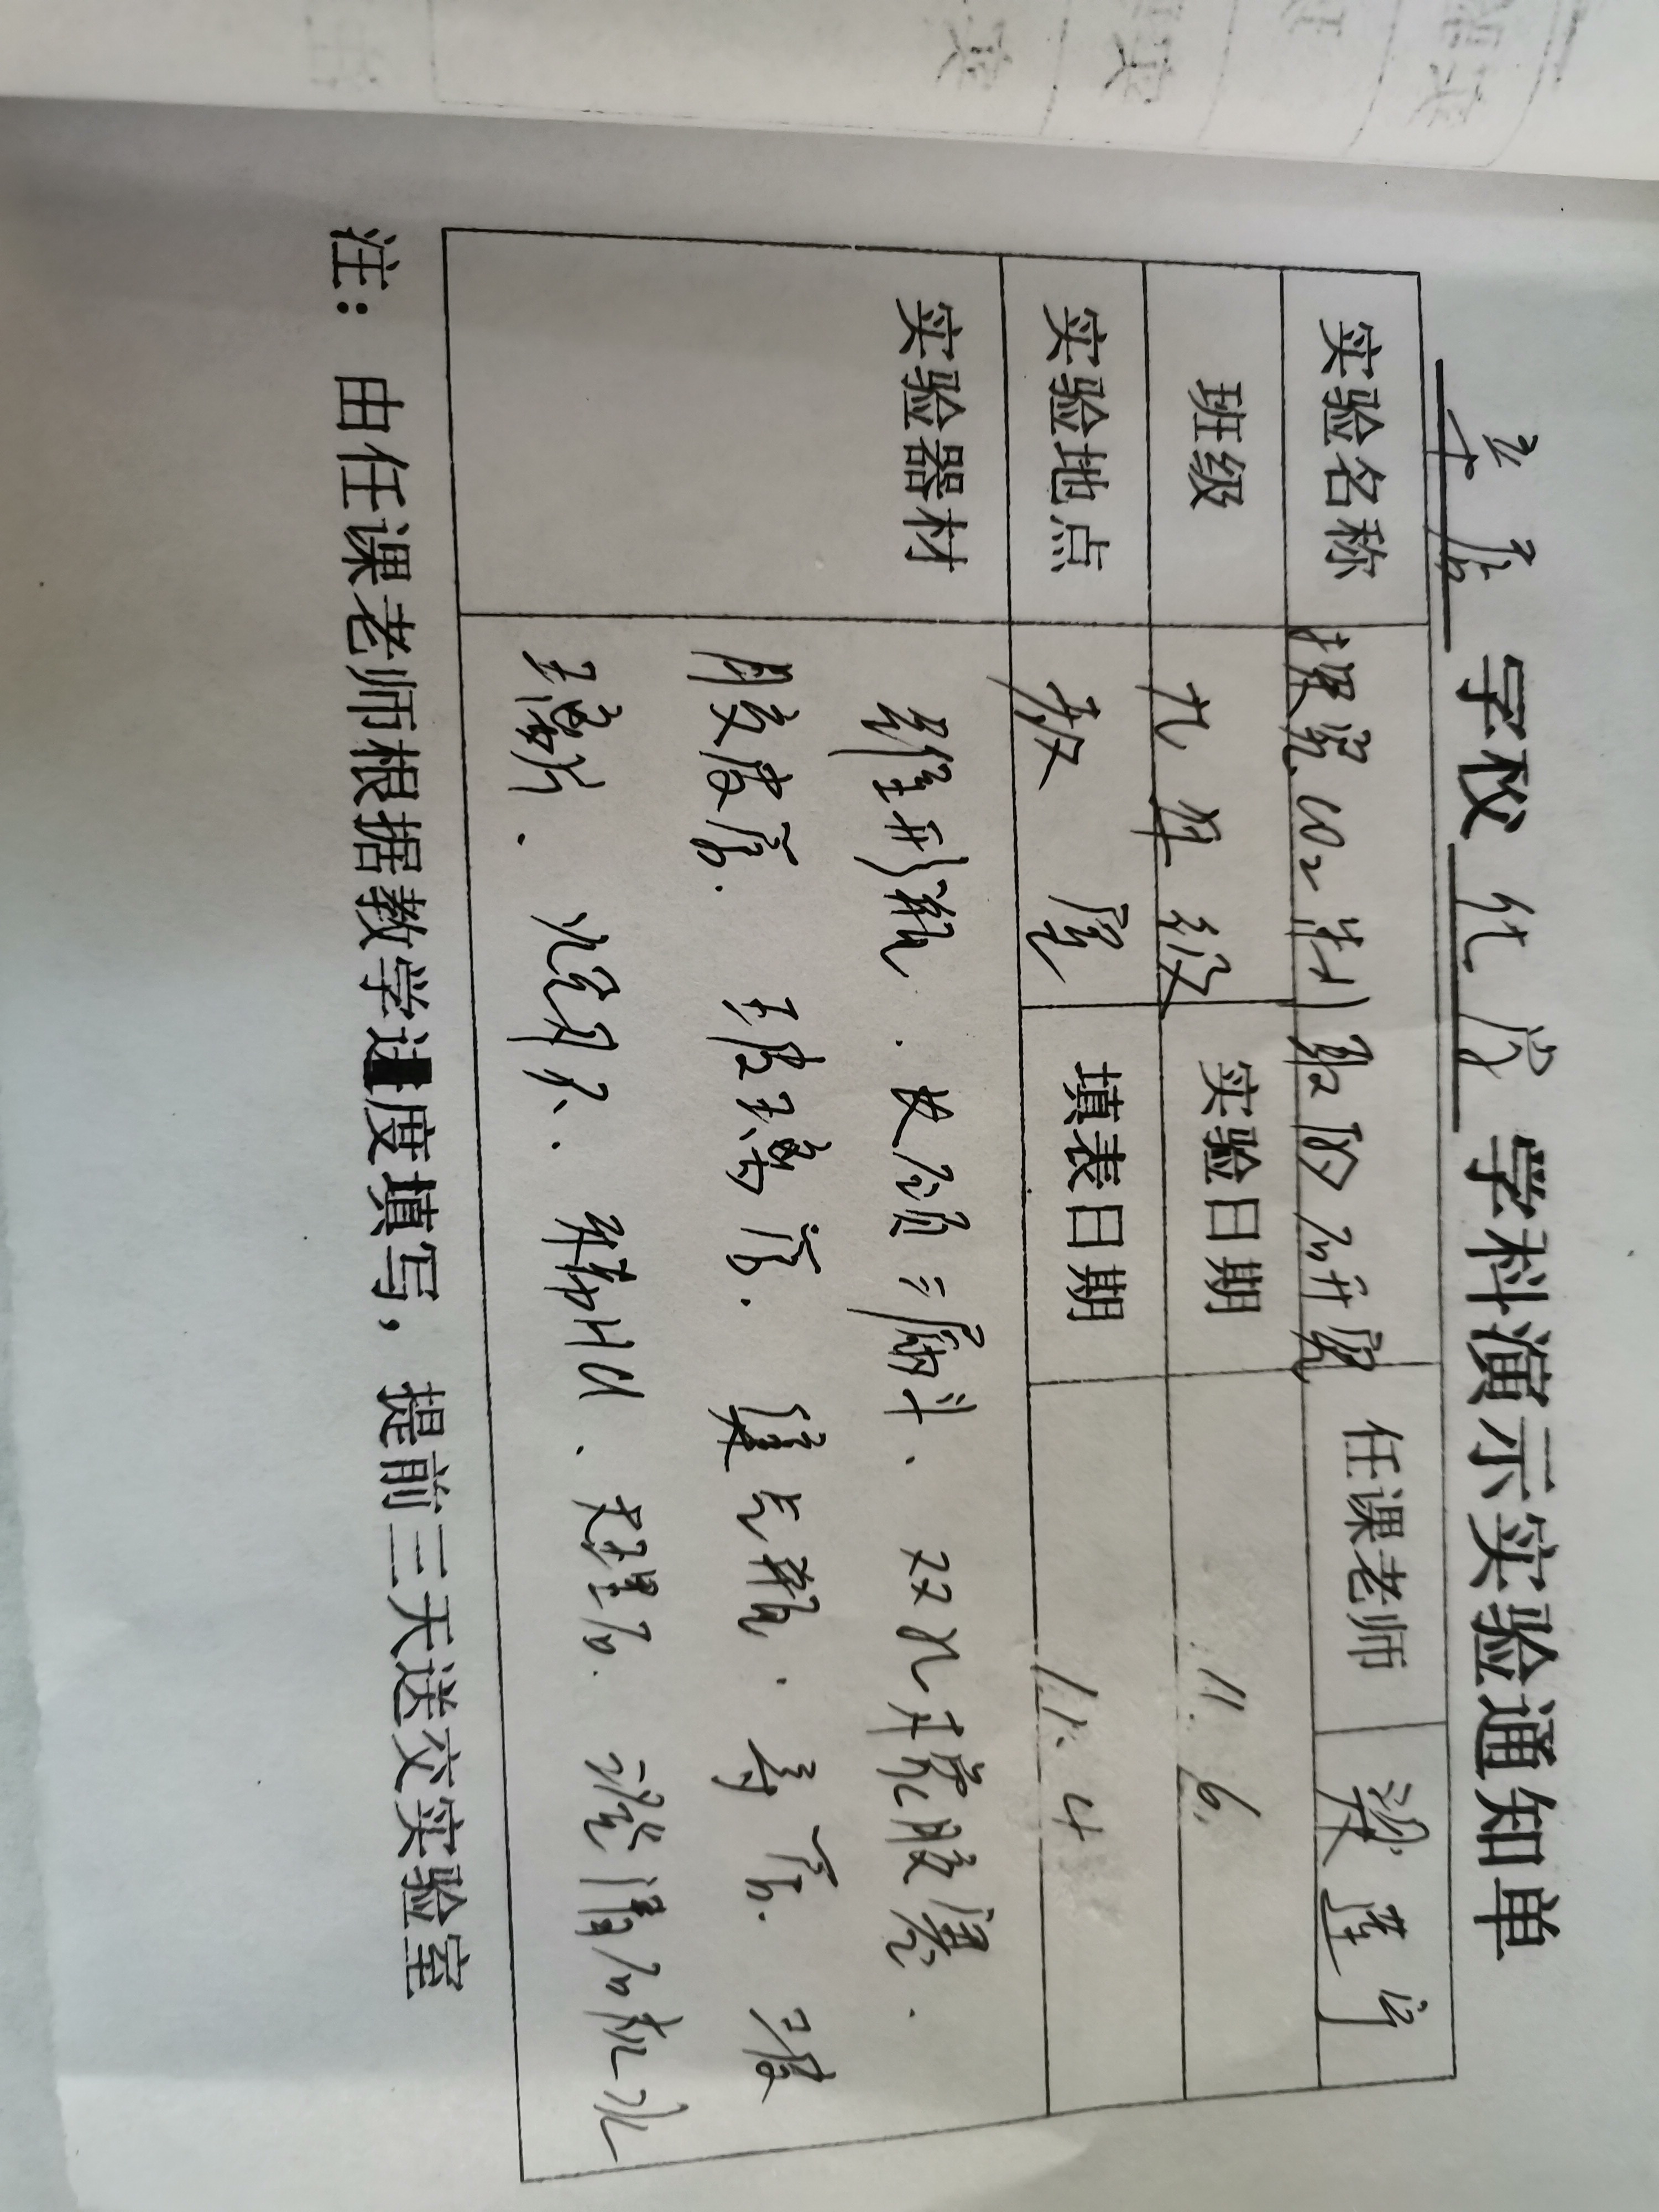 学校 化学 学科演示实验通知单
实验名称 探究CO2制取的研究 任课老师
班级 九年级 实验日期 11.6
实验地点 教室 填表日期 11.4
实验器材 锥形瓶.长颈漏斗、双孔橡胶塞.
胶皮管.玻璃管.集气瓶.导管.玻
璃片.水槽.稀HCl、大理石.澄清石灰水
注：由任课老师根据教学进度填写，提前三天送交实验室